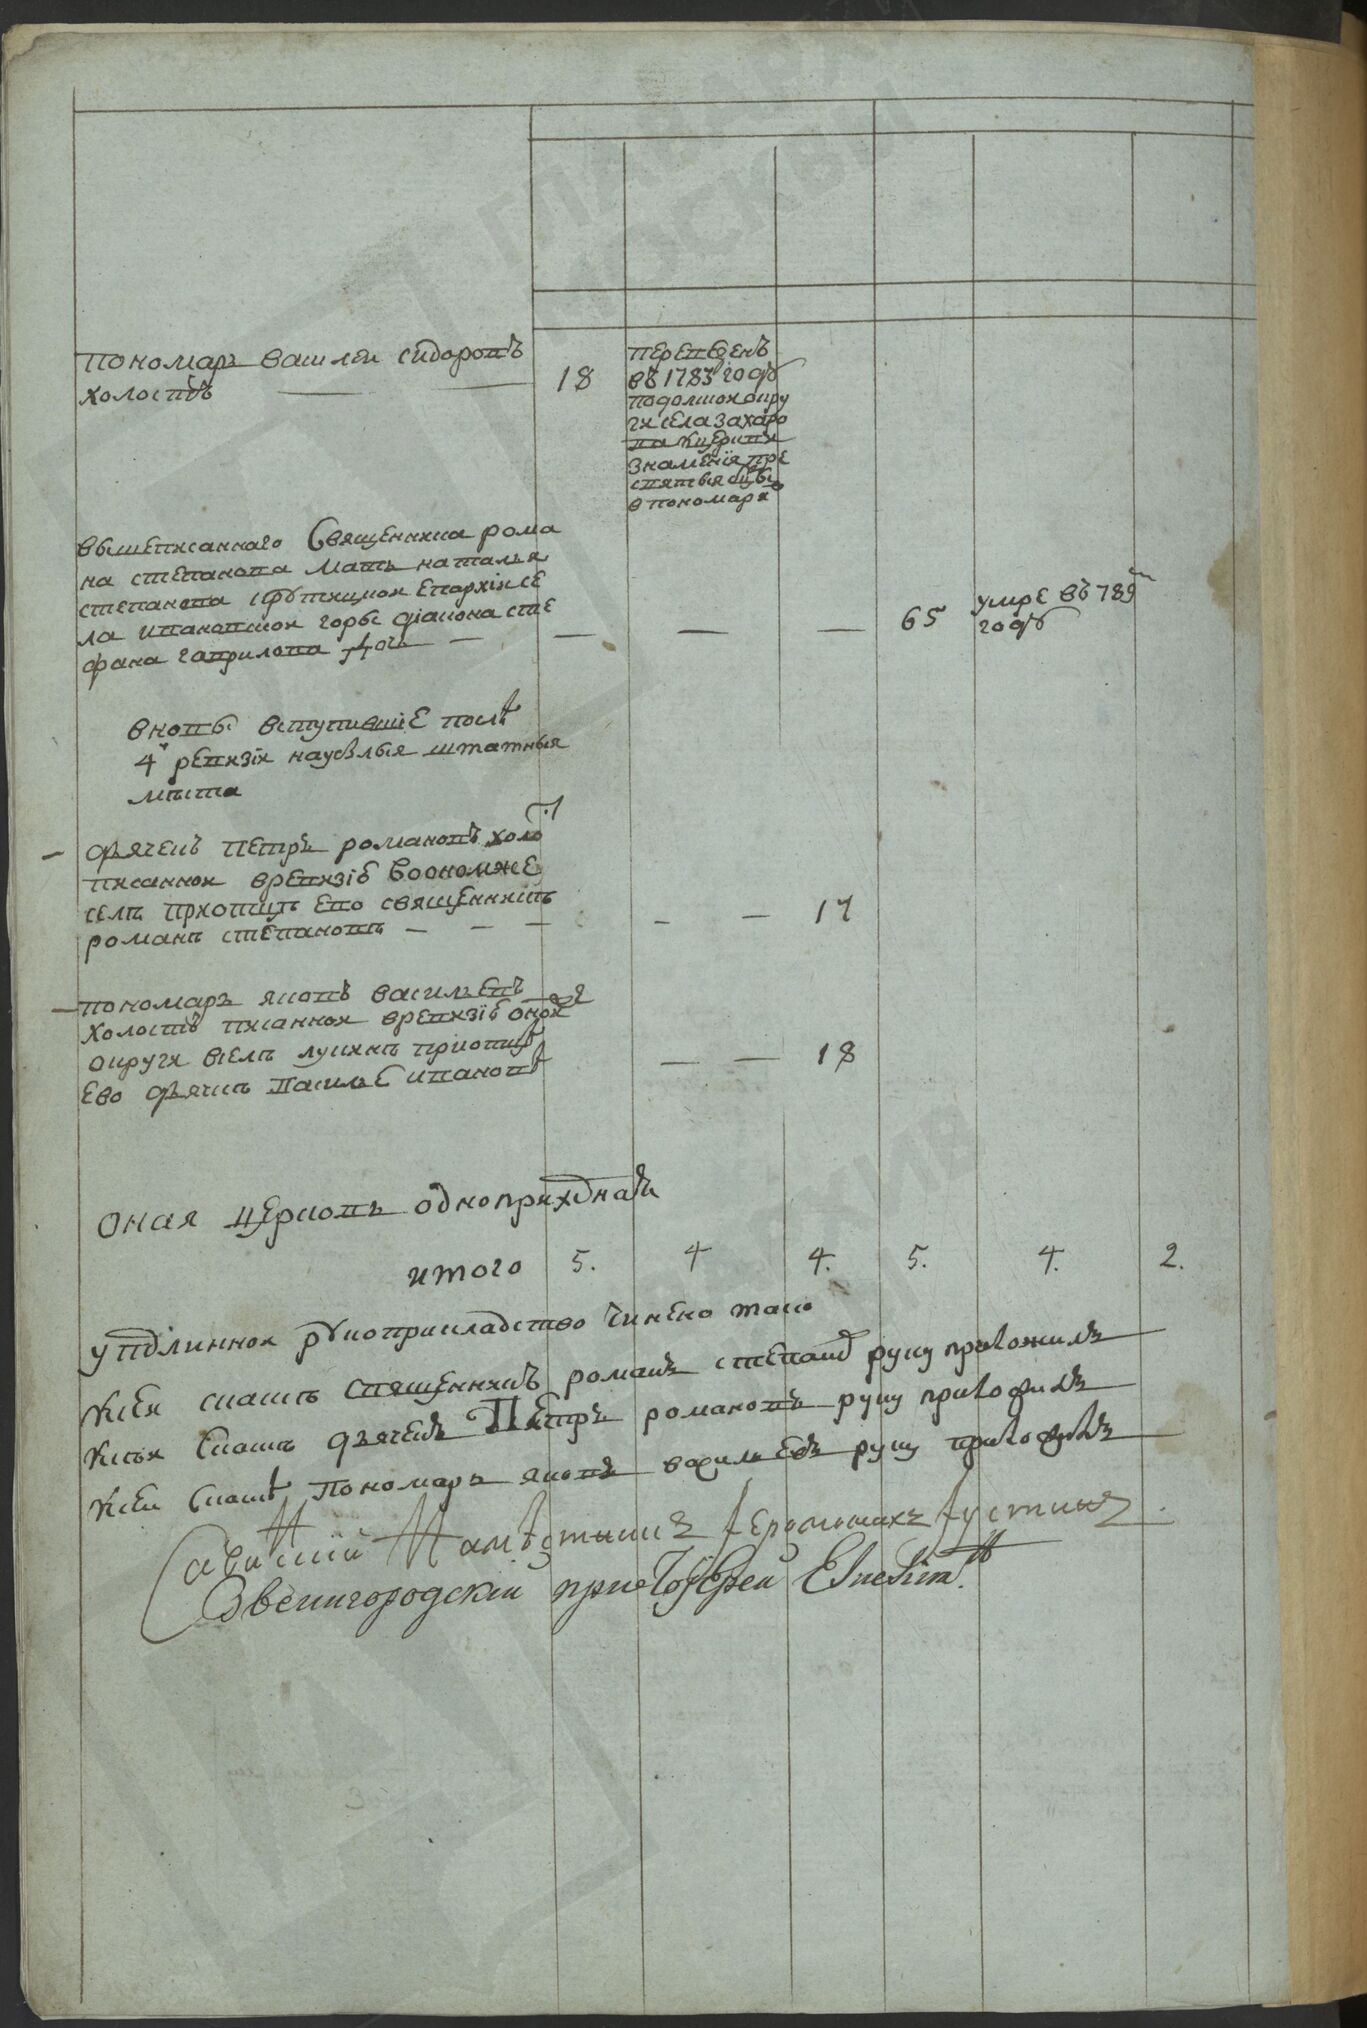 пономарь василеи сидоровъ
холостъ
18
переведенъ
въ 1783 годѣ
подолскои окру
ги села захаро
ва кцеркви
знамения пре
святыя бцы
в пономаря
вышеписаннаго Священника рома
на степанова мать наталья
степанова крутицкои епархии се
ла ивановскои горы диакона сте
фана гаврилова дочь
65
умре въ 789м
годѣ
вновь вступившие послѣ
4й ревизии науселыя штатныя
мѣста
дьячекъ петръ романовъ холо
писаннои вревизіи воономже
селѣ приотцѣ ево священникѣ
романѣ степановѣ
17
пономарь яковъ васильевъ
холостъ писаннои вревизіи оной
округи вселѣ луцинѣ приотцѣ
ево дьячкѣ василье ивановѣ
18
оная церковь одноприходная
итого 5. 4 4. 5. 4. 2.
уподлиннои рукоприкладство чинено тако
Ксеи скаскѣ священникъ романъ степановъ руку приложилъ
Ксеи скаскѣ дьячекъ Петръ романовъ руку приложилъ
Ксеи скаскѣ Пономарь яковъ васильевъ руку приложилъ
Савинскій Намѣстникъ Іеромонахъ Іустинъ
Звенигородскій протоіерей